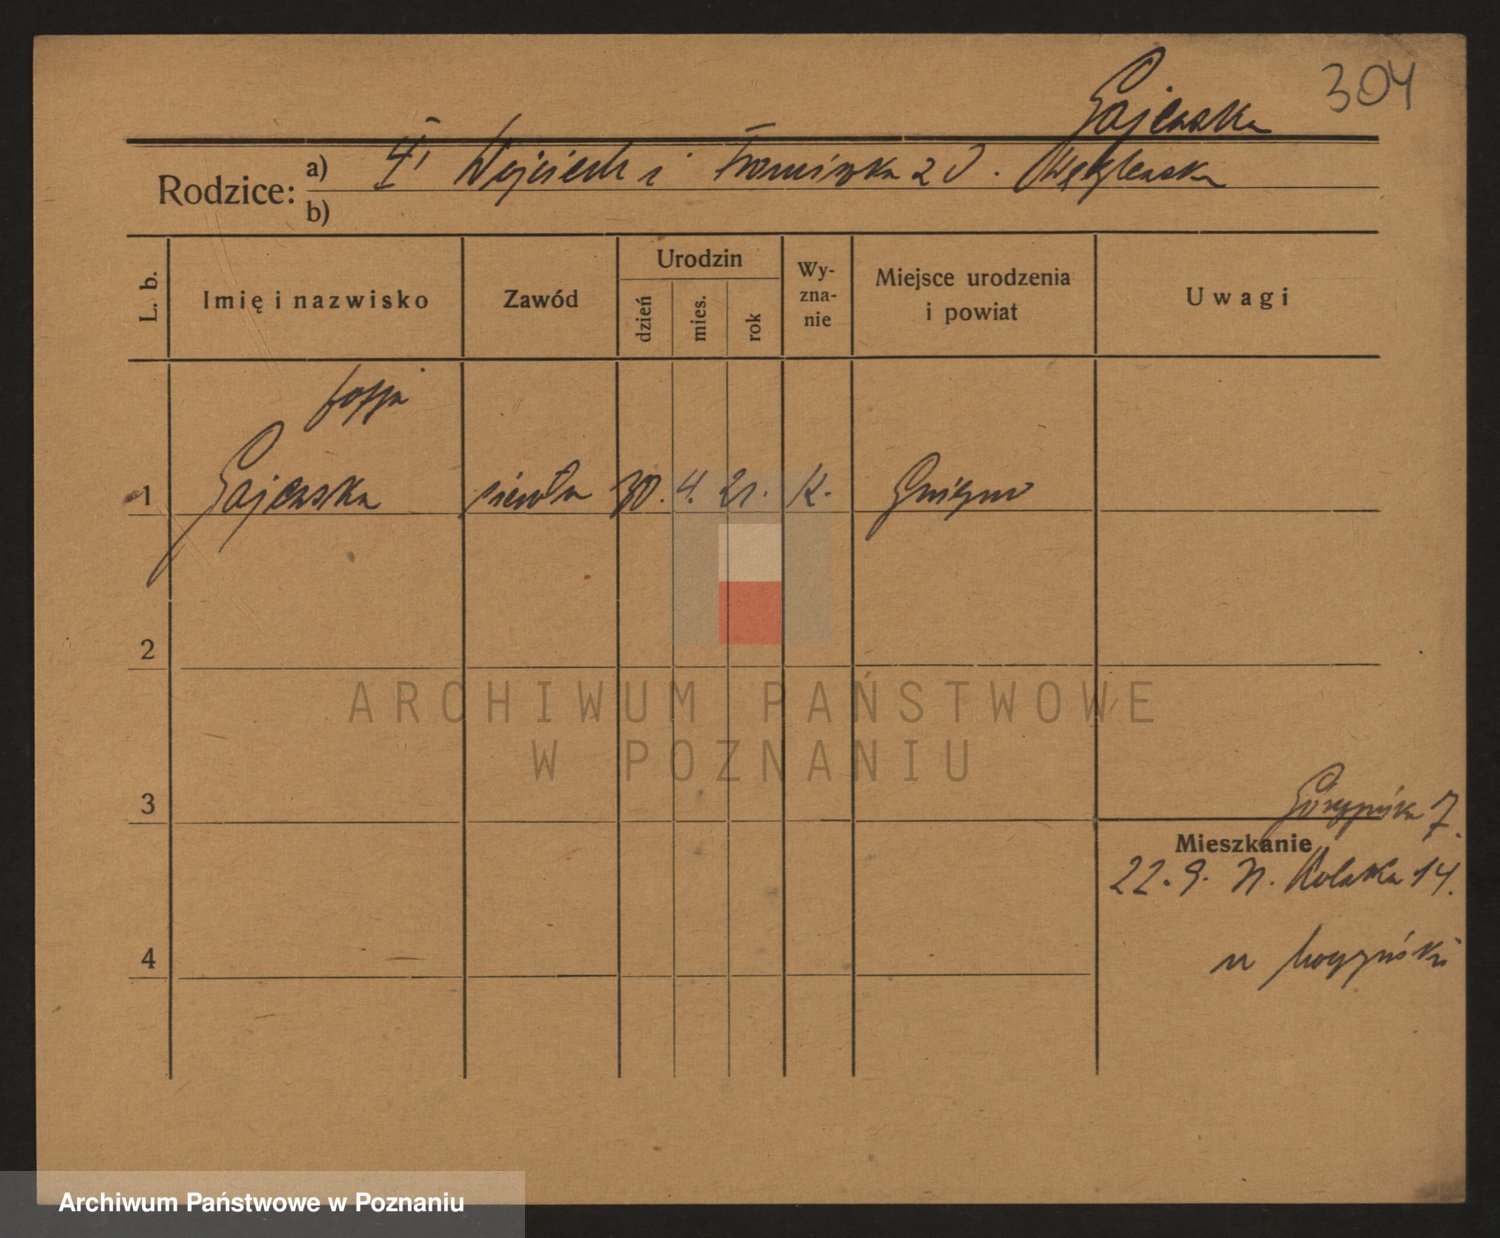 304
Gajewska
Rodzice: a) Wojciech i Franciszka z d.
b)
L. b. Imię i nazwisko Zawód Urodzin dzień mies. rok Wyzna-nie Miejsce urodzenia i powiat Uwagi
Zofja
1 Gajewska 30. 4. 21. K. Gniezno
2
ARCHIWUM PAŃSTWOWE
W POZNANIU
3
7.
Mieszkanie
22. 9. 14.
4 u
Archiwum Państwowe w Poznaniu